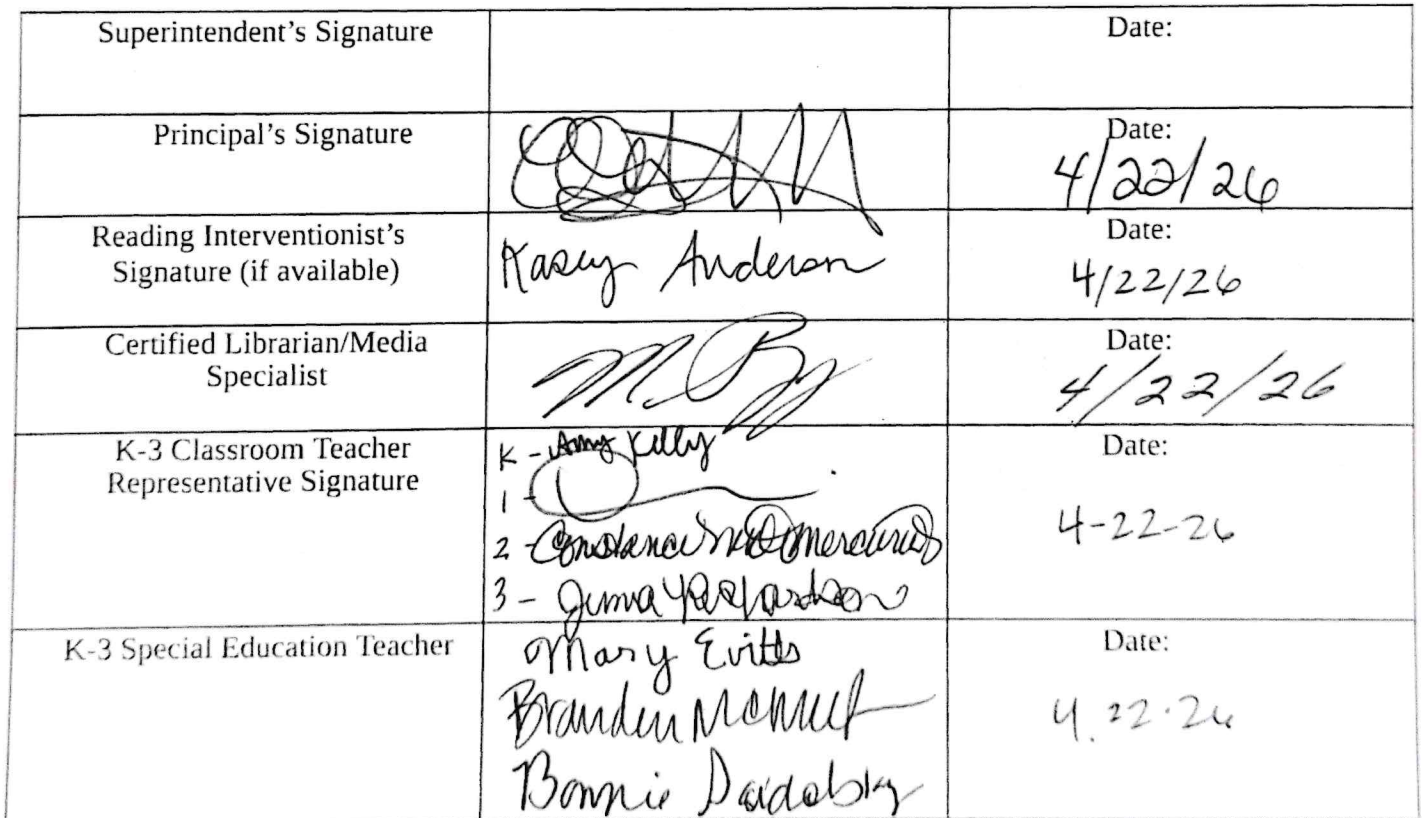 Superintendent's Signature
Date:
Principal's Signature
Date:
4/22/26
Reading Interventionist's
Signature (if available)
Kasey Anderson
Date:
4/22/26
Certified Librarian/Media
Specialist
Date:
4/22/26
K-3 Classroom Teacher
Representative Signature
K - Amy Kelly
1 -
2 - Constance
3 -
Date:
4-22-26
K-3 Special Education Teacher
Mary Evitts
Branden
Bonnie
Date:
4.22.26